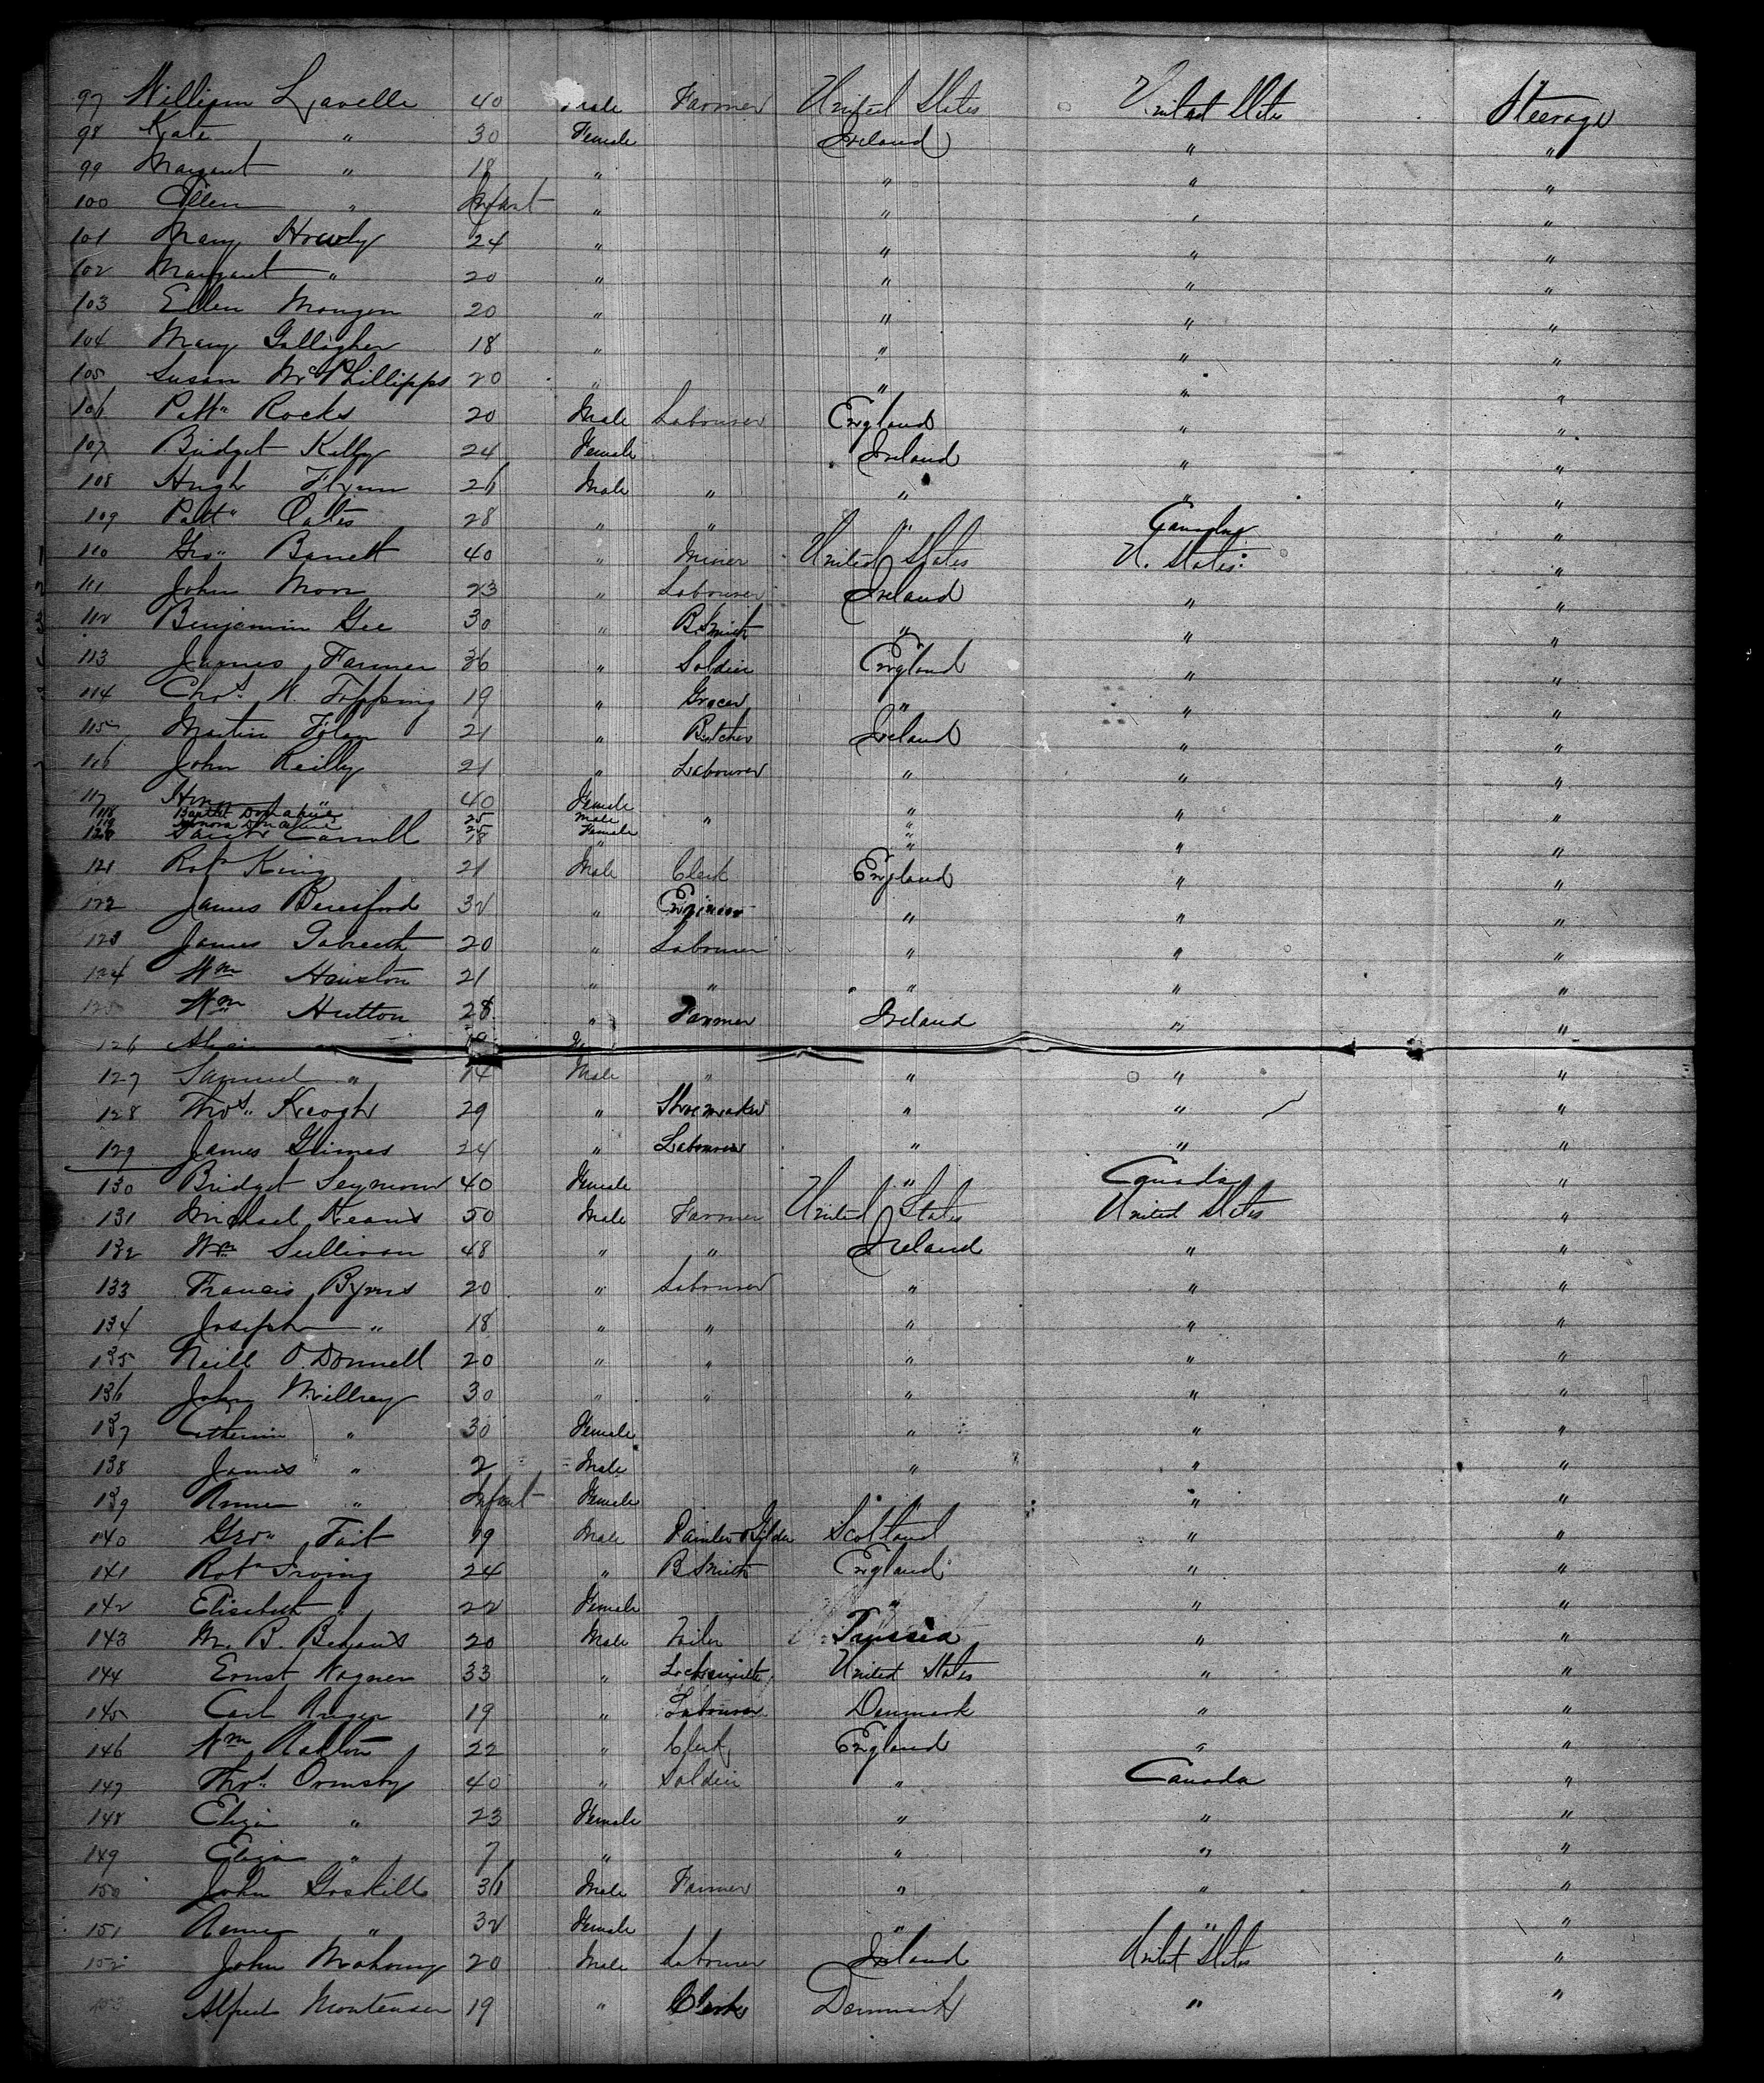 97 William Lavelle 40 Male Farmer United States United States Steerage
98 Kate " 30 Female Ireland " "
99 Margaret " 18 " " " "
100 Ellen " Infant " " " "
101 Mary Hawly 24 " " " "
102 Margaret " 20 " " " "
103 Ellen Mongen 20 " " " "
104 Mary Gallagher 18 " " " "
105 Susan McPhillipps 20 " " " "
106 Patk Rocks 20 Male Labourer England " "
107 Bridget Kelly 24 Female Ireland " "
108 Hugh Flynn 26 Male " " " "
109 Patk Oates 28 " " " Canada "
110 Geo" Barrett 40 " Miner United States U. States "
111 John Moon 23 " Labourer Ireland " "
112 Benjamin Gee 30 " B.Smith " " "
113 James Farmer 36 " Soldier England " "
114 Chas. W. Topping 19 " Grocer " " "
115 Martin Folan 21 " Butcher Ireland " "
116 John Reilly 21 " Labourer " " "
117 Honor " 40 Female " " "
118 Bartlet Donahue 25 Male " "
119 Honora Donahue 25 Female "
120 Carroll 18 " " " "
121 Robt King 21 Male Clerk England " "
122 James Beresford 32 " Engineer " " "
123 James 20 " Labourer " " "
124 Wm Hairston 21 " " " " "
125 Wm Hutton 28 " Farmer Ireland " "
126 Alice
127 Samuel " 14 Male " " " "
128 Thos. Keogh 29 " Shoemaker " " "
129 James Grimes 24 " Labourer " " "
130 Bridget Seymour 40 Female " Canada "
131 Michael Keans 50 Male Farmer United States United States "
132 Wm Sullivan 48 " " Ireland " "
133 Francis Byrns 20 " Labourer " " "
134 Joseph " 18 " " " " "
135 Neill O.Donnell 20 " " " " "
136 John Millrey 30 " " " " "
137 Catherin " 30 Female " " "
138 James " 2 Male " " "
139 Anne " Infant Female " " "
140 Geo" Tait 19 Male Painter & Gilder Scotland " "
141 Robt Irving 24 " B Smith England " "
142 Elisabeth " 22 Female " " "
143 M. B. 20 Male Tailor " "
144 Ernst Wagner 33 " Locksmith United States " "
145 Carl 19 " Labourer Denmark " "
146 Wm Ralton 22 " Clerk England " "
147 Thos. Ormsby 40 " Soldier " Canada "
148 Eliza " 23 Female " " "
149 Eliza " 7 " " " "
150 John Gaskill 36 Male Farmer " " "
151 Anne " 32 Female " " "
152 John Mahony 20 Male Labourer Ireland United States "
153 Alfred Mortensen 19 " Clerk Denmark " "